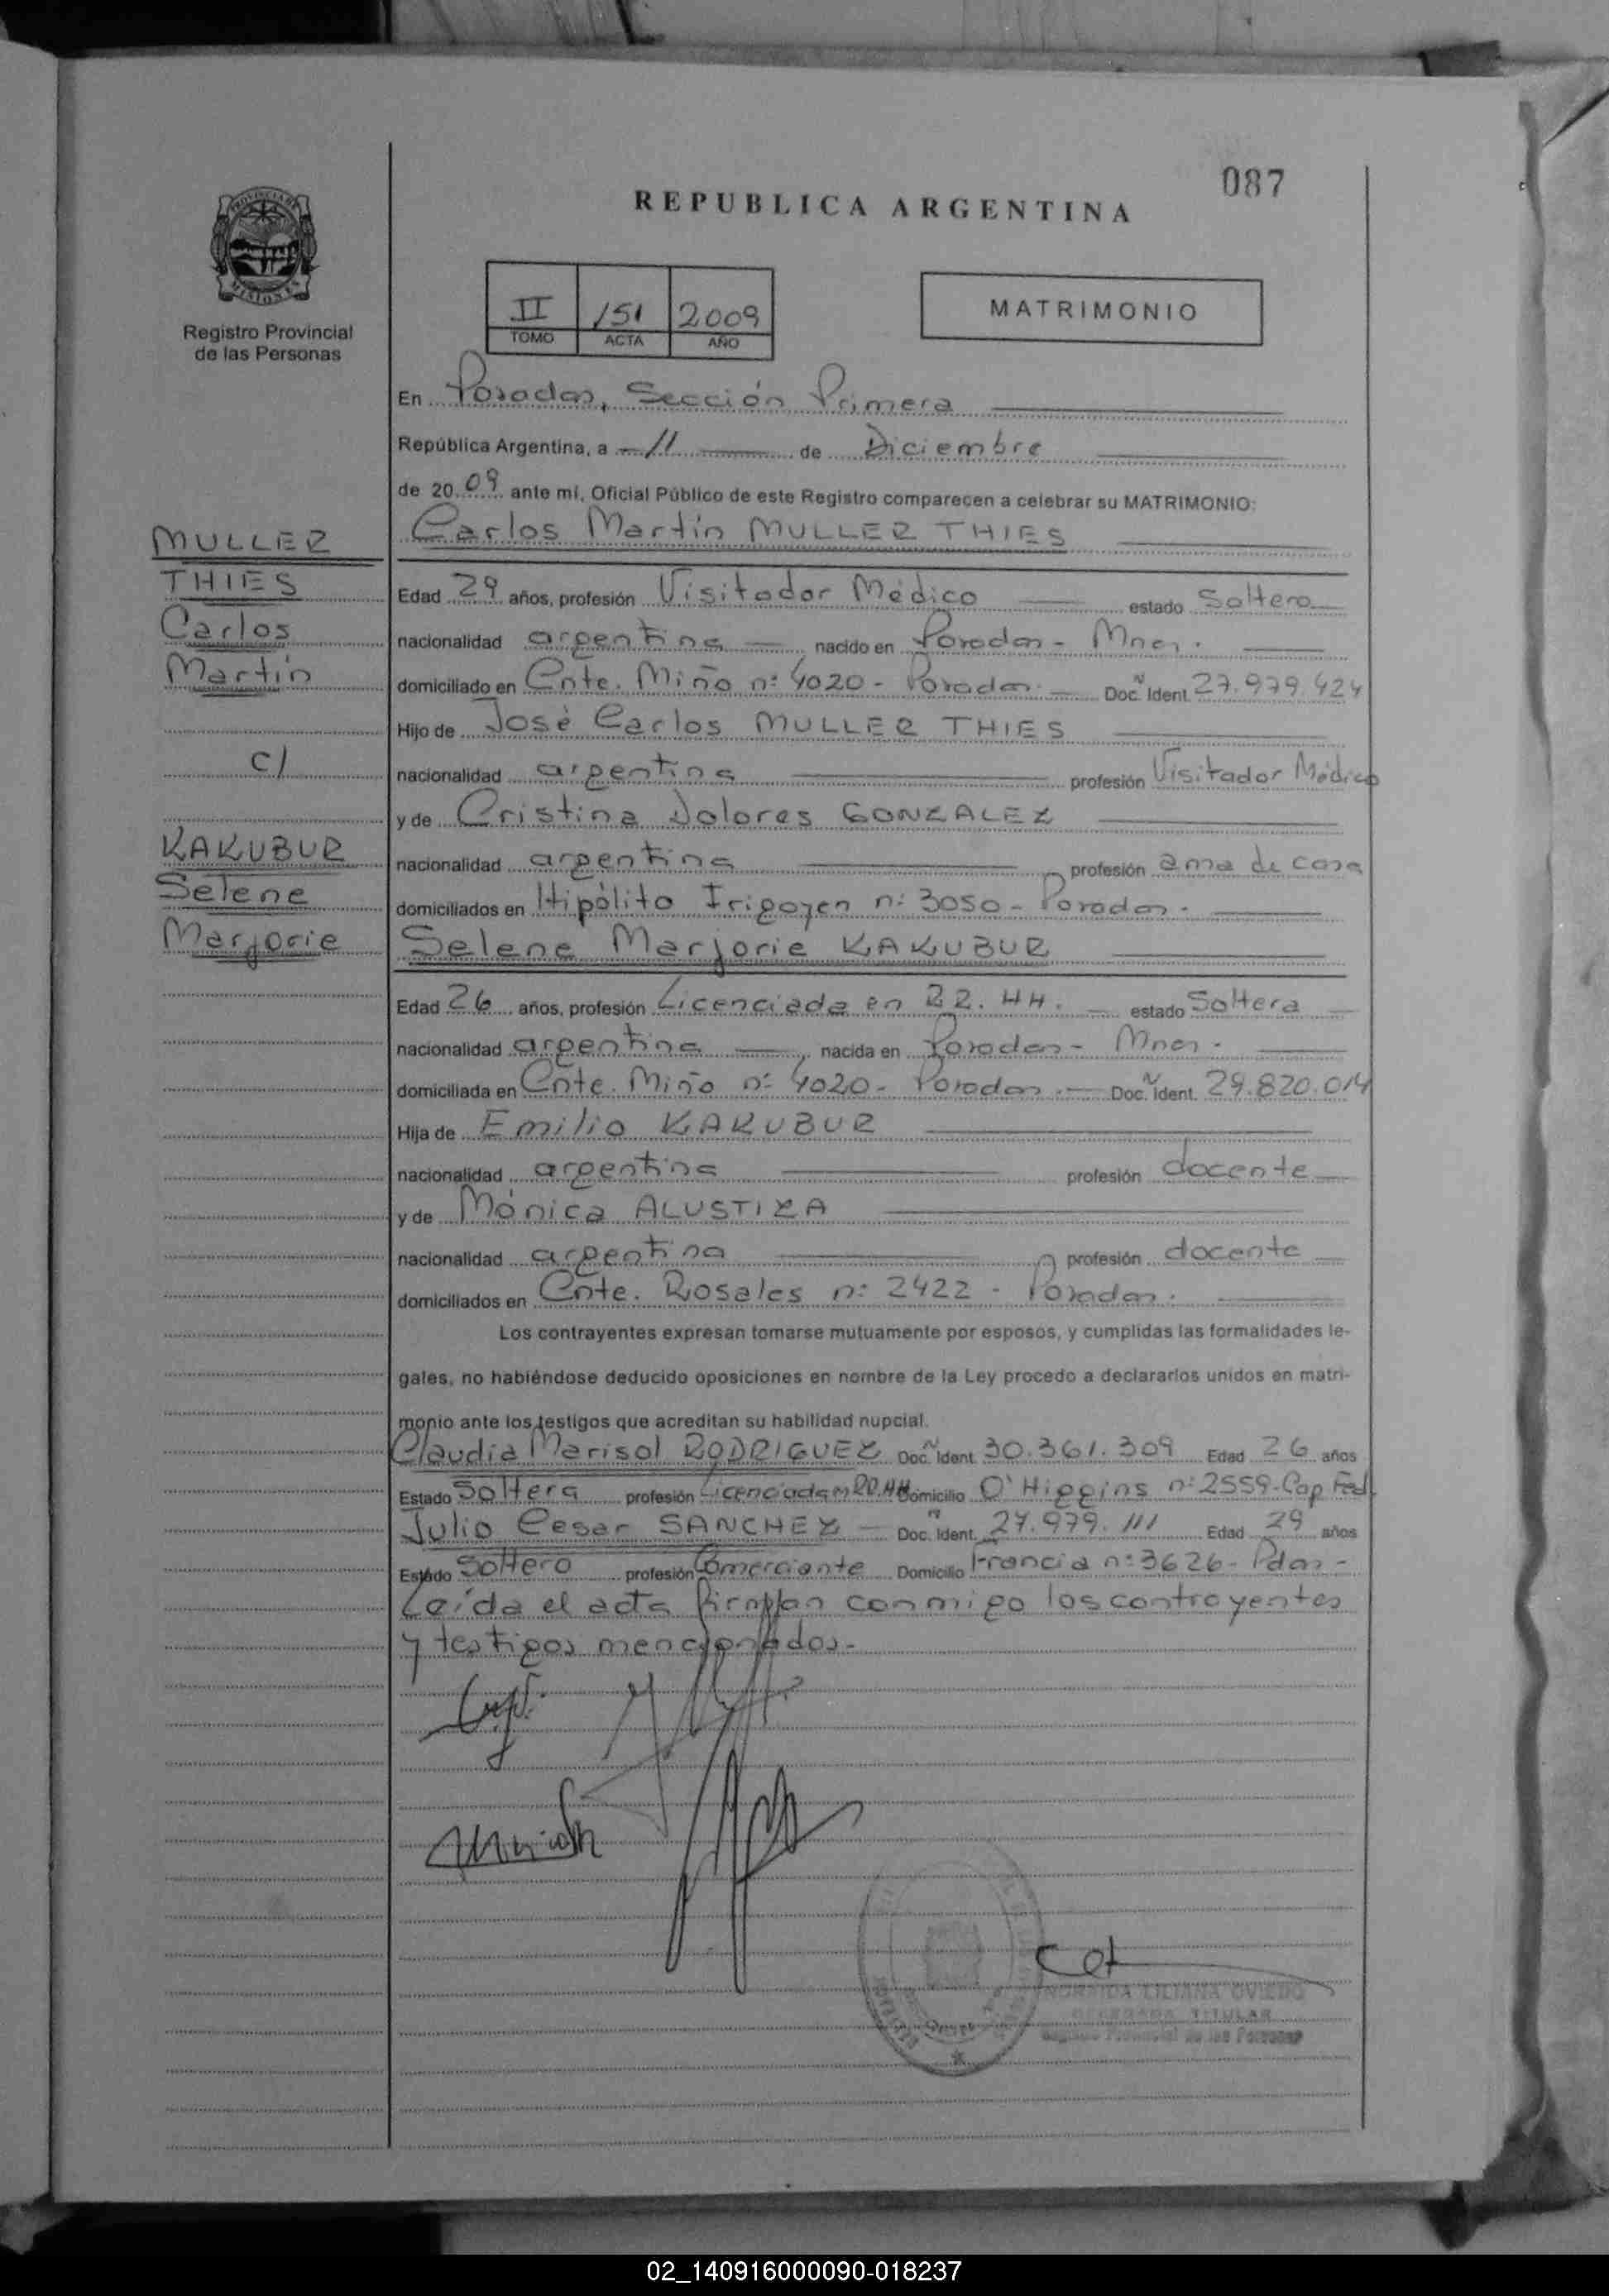 087
REPUBLICA ARGENTINA
PROVINCIA DE
MISIONES
Registro Provincial
de las Personas
II 151 2009
TOMO ACTA AÑO
MATRIMONIO
En Posadas, Sección Primera
República Argentina, a 11 de Diciembre
de 2009 ante mí, Oficial Público de este Registro comparecen a celebrar su MATRIMONIO:
Carlos Martín MULLER THIES
MULLER
THIES
Carlos
Martín
c/
KAKUBUR
Selene
Marjorie
Edad 29 años, profesión Visitador Médico estado Soltero
nacionalidad argentina nacido en Posadas - Mnes.
domiciliado en Cnte. Miño nº 4020 - Posadas. Doc. Ident. Nº 27.979.424
Hijo de José Carlos MULLER THIES
nacionalidad argentina profesión Visitador Médico
y de Cristina Dolores GONZALEZ
nacionalidad argentina profesión ama de casa
domiciliados en Hipólito Irigoyen nº 3050 - Posadas.
Selene Marjorie KAKUBUR
Edad 26 años, profesión Licenciada en RR. HH. estado Soltera
nacionalidad argentina nacida en Posadas - Mnes.
domiciliada en Cnte. Miño nº 4020 - Posadas. Doc. Ident. Nº 29.820.014
Hija de Emilio KAKUBUR
nacionalidad argentina profesión docente
y de Mónica ALUSTIZA
nacionalidad argentina profesión docente
domiciliados en Cnte. Rosales nº 2422 - Posadas.
Los contrayentes expresan tomarse mutuamente por esposos, y cumplidas las formalidades le-
gales, no habiéndose deducido oposiciones en nombre de la Ley procedo a declararlos unidos en matri-
monio ante los testigos que acreditan su habilidad nupcial.
Claudia Marisol RODRIGUEZ Doc. Ident. Nº 30.361.309 Edad 26 años
Estado Soltera profesión Licenciada en RR.HH Domicilio O'Higgins nº 2559-Cap Fed.
Julio Cesar SANCHEZ - Doc. Ident. Nº 27.979.111 Edad 29 años
Estado Soltero profesión Comerciante Domicilio Francia nº 3626 - Pdas -
Leída el acta firman conmigo los contrayentes
y testigos mencionados.-
LILIANA OVIEDO
TITULAR
Registro Provincial de las Personas
02_140916000090-018237